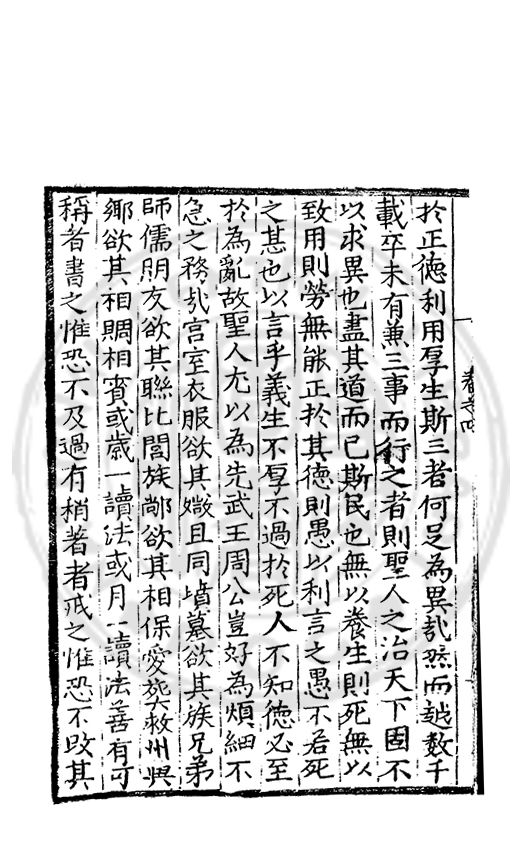 於正德利用厚生斯三者何足為異㢤然而越数千
載卒未有兼三事而行之者則聖人之治天下固不
以求異也盡其道而已斯民也無以養生則死無以
致用則勞無能正於其德則愚以利言之愚不若死
之甚也以言乎義生不厚不過於死人不知德必至
於為亂故聖人尤以為先武王周公豈好為煩細不
急之務㢤宮室衣服欲其媺且同墳墓欲其族兄弟
師儒朋友欲其聯比閭族鄰欲其相保愛葬救州與
鄉欲其相賙相賓或歲一讀法或月一讀法善有可
稱者書之惟恐不及過有稍著者戒之惟恐不改其
卷之四